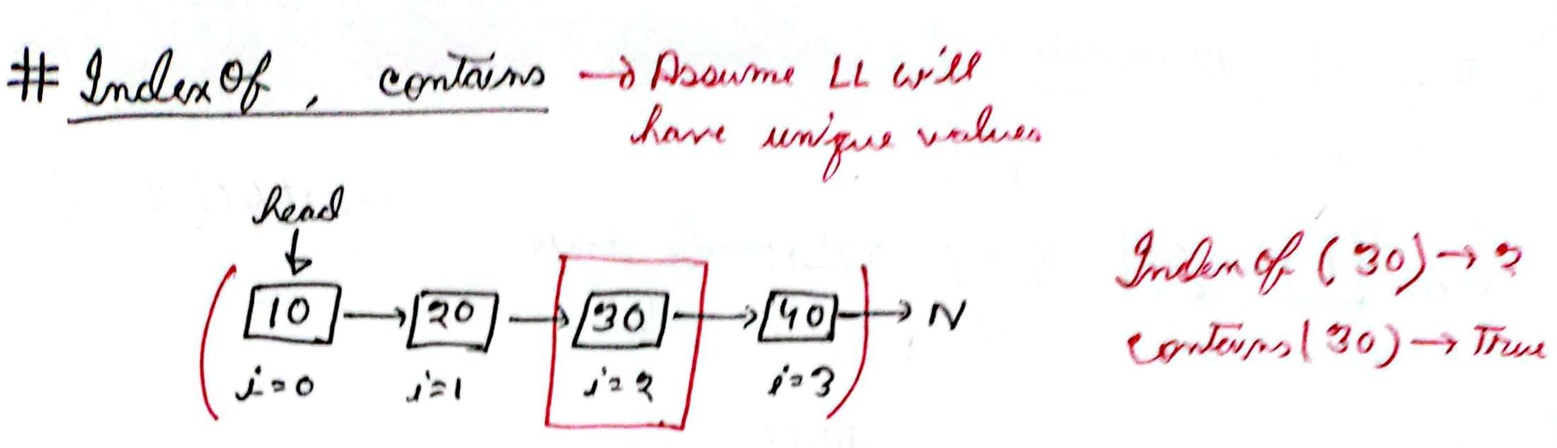 # IndexOf, contains → Assume LL will
have unique values
head
10 → 20 → 30 → 40 → N
i=0 i=1 i=2 i=3
IndexOf (30) → 2
contains(30) → True